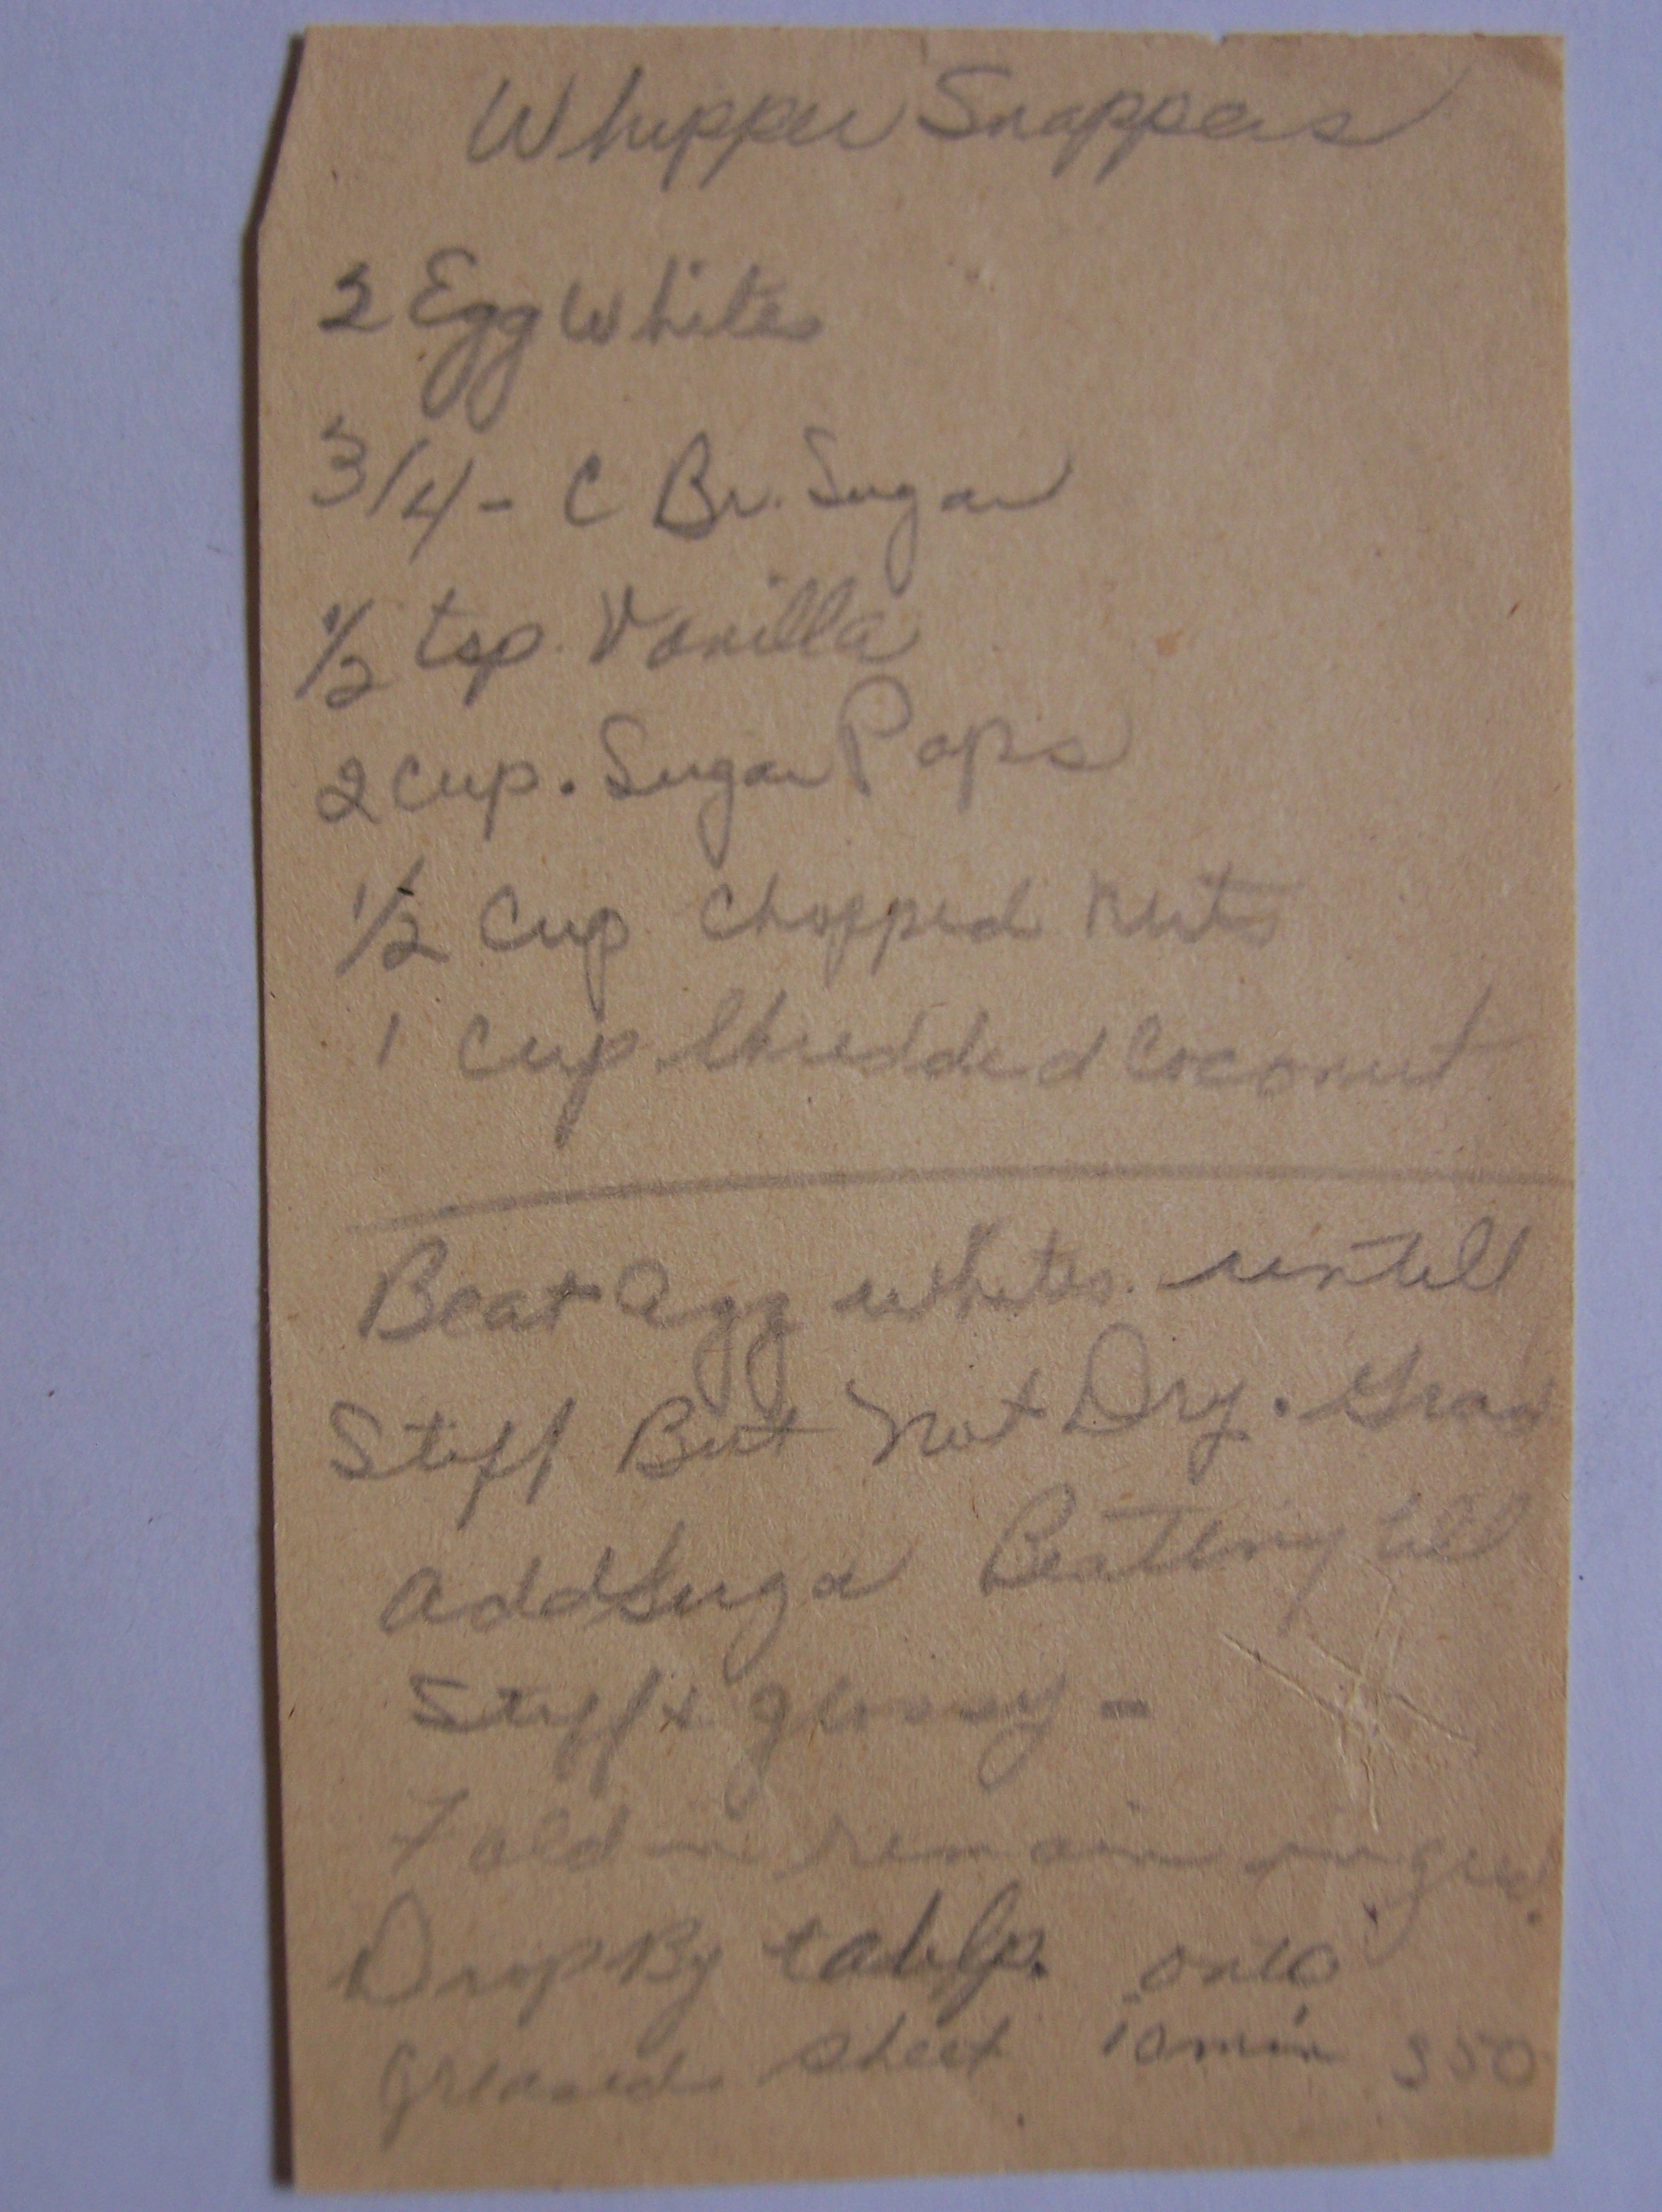 Whipper Snappers
2 Egg Whites
3/4 - C Br. Sugar
1/2 tsp. Vanilla
2 cup. Sugar Pops
1/2 Cup Chopped Nuts
1 Cup Shredded Coconut
Beat egg whites untill
Stiff But Not Dry. Grad
add Sugar Beating till
Stiff & glossy -
Fold in remain ingred.
Drop By tablsp. onto
greased sheet 10 min 350